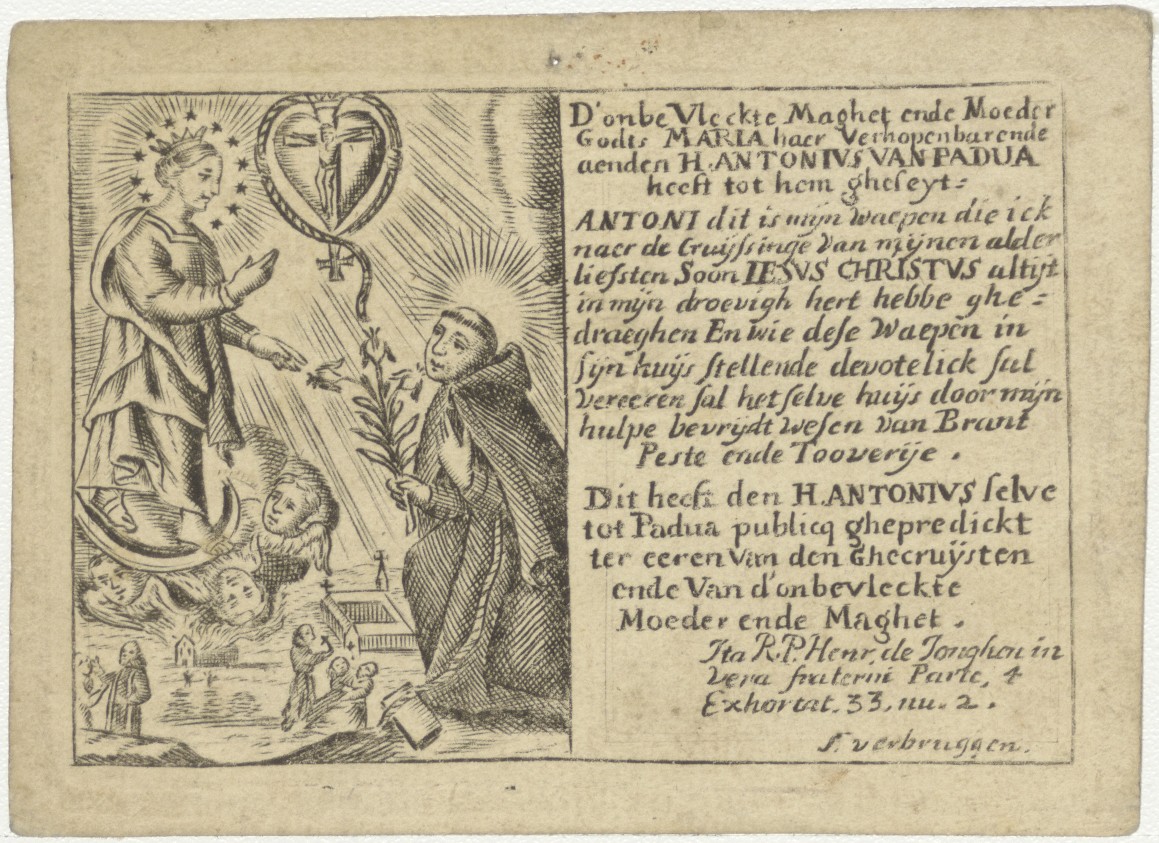 D'onbeVleckte Maghet ende Moeder
Godts MARIA haer Verhopenbarende
aenden H.ANTONIVS VAN PADUA
heeft tot hem gheseyt=
ANTONI dit is mijn Waepen die ick
naer de Cruijssinge Van mijnen alder
liefsten Soon IESVS CHRISTVS altijt
in mijn droevigh hert hebbe ghe=
draeghen En wie dese Waepen in
sijn huijs stellende devotelick sal
vereeren sal het selve huijs door mijn
hulpe bevrijdt wesen Van Brant
Peste ende Tooverije .
Dit heeft den H.ANTONIVS selve
tot Padua publicq ghepredickt
ter eeren Van den Ghecruijsten
ende Van d'onbevleckte
Moeder ende Maghet .
Ita R.P. Henr. de Jonghen in
Vera fraterni Parte, 4
Exhortat. 33. nu. 2 .
s. verbruggen.